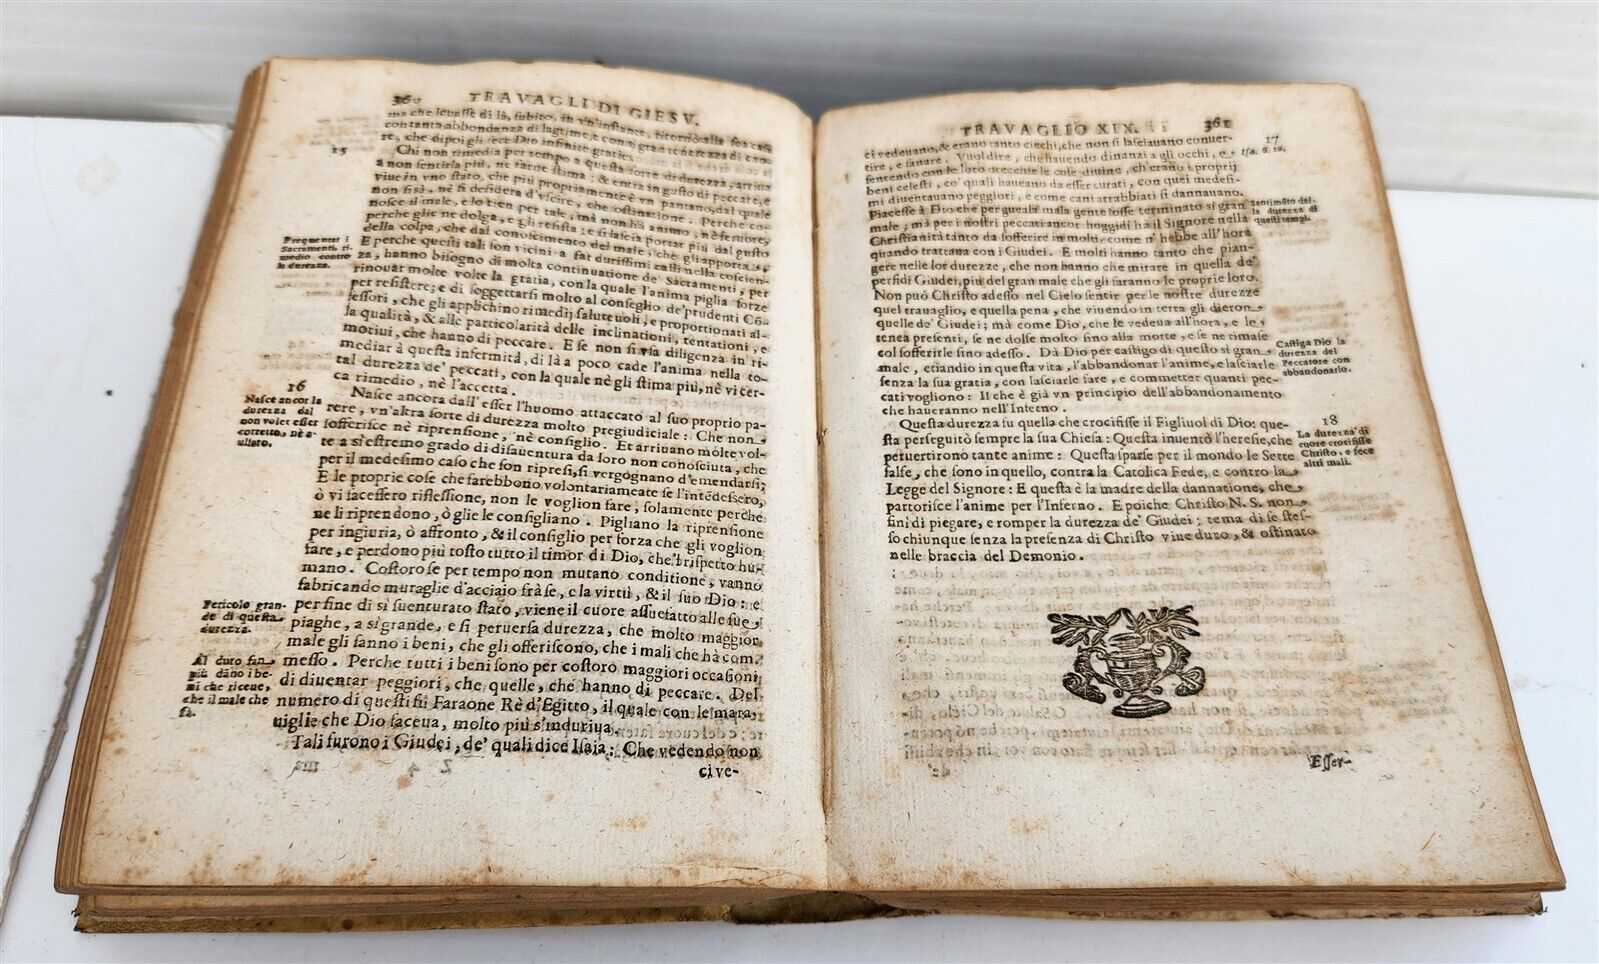 360 TRAVAGLI DI GIESV.
ma che leuasse di là, subito, in vn'instante, ritornò alla sea
con tanta abbondanza di lagrime, e con sì gran tenerezza di
re, che dipoi gli fece Dio infinite gratie.
15
Chi non rimedia per tempo a questa sorte di durezza, arriua
à non sentirsa più, ne farne stima: & entra in gusto di peccate, e
viue in vno stato, che più propriamente è vn pantano, dal quale
non si sà, nè si desidera d'vscire, che ostinatione. Perche co-
nosce il male, e lo tien per tale, mà non hà animo, nè feruore,
perche glie ne dolga, e gli resista: e si lascia portar più dal gusto
della colpa, che dal conoscimento del male, che gli apporta.
Frequentar i
Sacramenti, ri-
medio contro
la durezza.
E perche questi tali son vicini a far durissimi calli nella coscien-
za, hanno bisogno di molta continuatione de' Sacramenti, per
rinouar molte volte la gratia, con la quale l'anima piglia forze
per resistere; e di soggettarsi molto al conseglio de' prudenti Cō-
fessori, che gli applichino rimedij saluteuoli, e proportionati al-
la qualità, & alle particolarità delle inclinationi, tentationi, e
motiui, che hanno di peccare. E se non si vsa diligenza in ri-
mediar à questa infermità, di là a poco cade l'anima nella to-
tal durezza de' peccati, con la quale nè gli stima più, nè vi cer-
ca rimedio, nè l'accetta.
16
Nasce ancor la
durezza dal
non voler esser
corretto, nè a-
uisato.
Nasce ancora dall' esser l'huomo attaccato al suo proprio pa-
rere, vn'altra sorte di durezza molto pregiudiciale: Che non
sofferisce nè riprensione, nè consiglio. Et arriuano molte vol-
te a sì estremo grado di disauentura da loro non conosciuta, che
per il medesimo caso che son ripresi, si vergognano d'emendarsi;
E le proprie cose che farebbono volontariamente se l'intēdessero,
ò vi facessero riflessione, non le voglion fare, solamente perche
ne li riprendono, ò glie le consigliano. Pigliano la riprensione
per ingiuria, ò affronto, & il consiglio per forza che gli voglion
fare, e perdono più tosto tutto il timor di Dio, che'l rispetto hu-
mano. Costoro se per tempo non mutano conditione, vanno
fabricando muraglie d'acciaio frà se, e la virtù, & il suo Dio: e
Pericolo gran-
de di questa
durezza.
per fine di sì suenturato stato, viene il cuore assuefatto alle sue
piaghe, a sì grande, e sì peruersa durezza, che molto maggior
male gli fanno i beni, che gli offeriscono, che i mali che hà com-
Al duro fan
più dāno i be-
ni che riceue,
che il male che
fà.
messo. Perche tutti i beni sono per costoro maggiori occasioni
di diuentar peggiori, che quelle, che hanno di peccare. Del
numero di questi fù Faraone Rè d'Egitto, il quale con le mara-
uiglie che Dio faceua, molto più s'induriua.
Tali furono i Giudei, de' quali dice Isaia: Che vedendo non
cive-
TRAVAGLIO XIX. 361
ci vedeuano, & erano tanto ciechi, che non si lasciauano conuer-
17
Isa. 6. 10.
tire, e sanare. Vuol dire, che hauendo dinanzi a gli occhi, e
sentendo con le loro orecchie le cose diuine, ch'erano i proprij
beni celesti, co' quali haueano da esser curati, con quei medesi-
mi diuentauano peggiori, e come cani arrabbiati si dannauano.
Piacesse à Dio che per guesla mala gente fosse terminato sì gran
male; mà per i nostri peccati ancor hoggidì ha il Signore nella
Christianità tanto da sofferire in molti, come n' hebbe all'hora
Sentimēto del-
la durezza di
questi tempi.
quando trattaua con i Giudei. E molti hanno tanto che pian-
gere nelle lor durezze, che non hanno che mirare in quella de'
perfidi Giudei, più del gran male che gli faranno le proprie loro.
Non può Christo adesso nel Cielo sentir per le nostre durezze
quel trauaglio, e quella pena, che viuendo in terra gli dieron
quelle de' Giudei; mà come Dio, che le vedeua all'hora, e le
tenea presenti, se ne dolse molto sino alla morte, e se ne rimase
col sofferirle sino adesso. Dà Dio per castigo di questo sì gran
male, etiandio in questa vita, l'abbandonar l'anime, e lasciarle
senza la sua gratia, con lasciarle fare, e commetter quanti pec-
cati vogliono: Il che è già vn principio dell'abbandonamento
che haueranno nell'Inferno.
Castiga Dio la
durezza del
Peccatore con
abbandonarlo.
18
La durezza di
cuore crocifisse
Christo, e fece
altri mali.
Questa durezza fu quella che crocifisse il Figliuol di Dio: que-
sta perseguitò sempre la sua Chiesa: Questa inuentò l'heresie, che
peruertirono tante anime: Questa sparse per il mondo le Sette
false, che sono in quello, contra la Catolica Fede, e contro la
Legge del Signore: E questa è la madre della dannatione, che
partorisce l'anime per l'Inferno. E poiche Christo N. S. non
finì di piegare, e romper la durezza de' Giudei: tema di se stes-
so chiunque senza la presenza di Christo viue duro, & ostinato
nelle braccia del Demonio.
Esser-